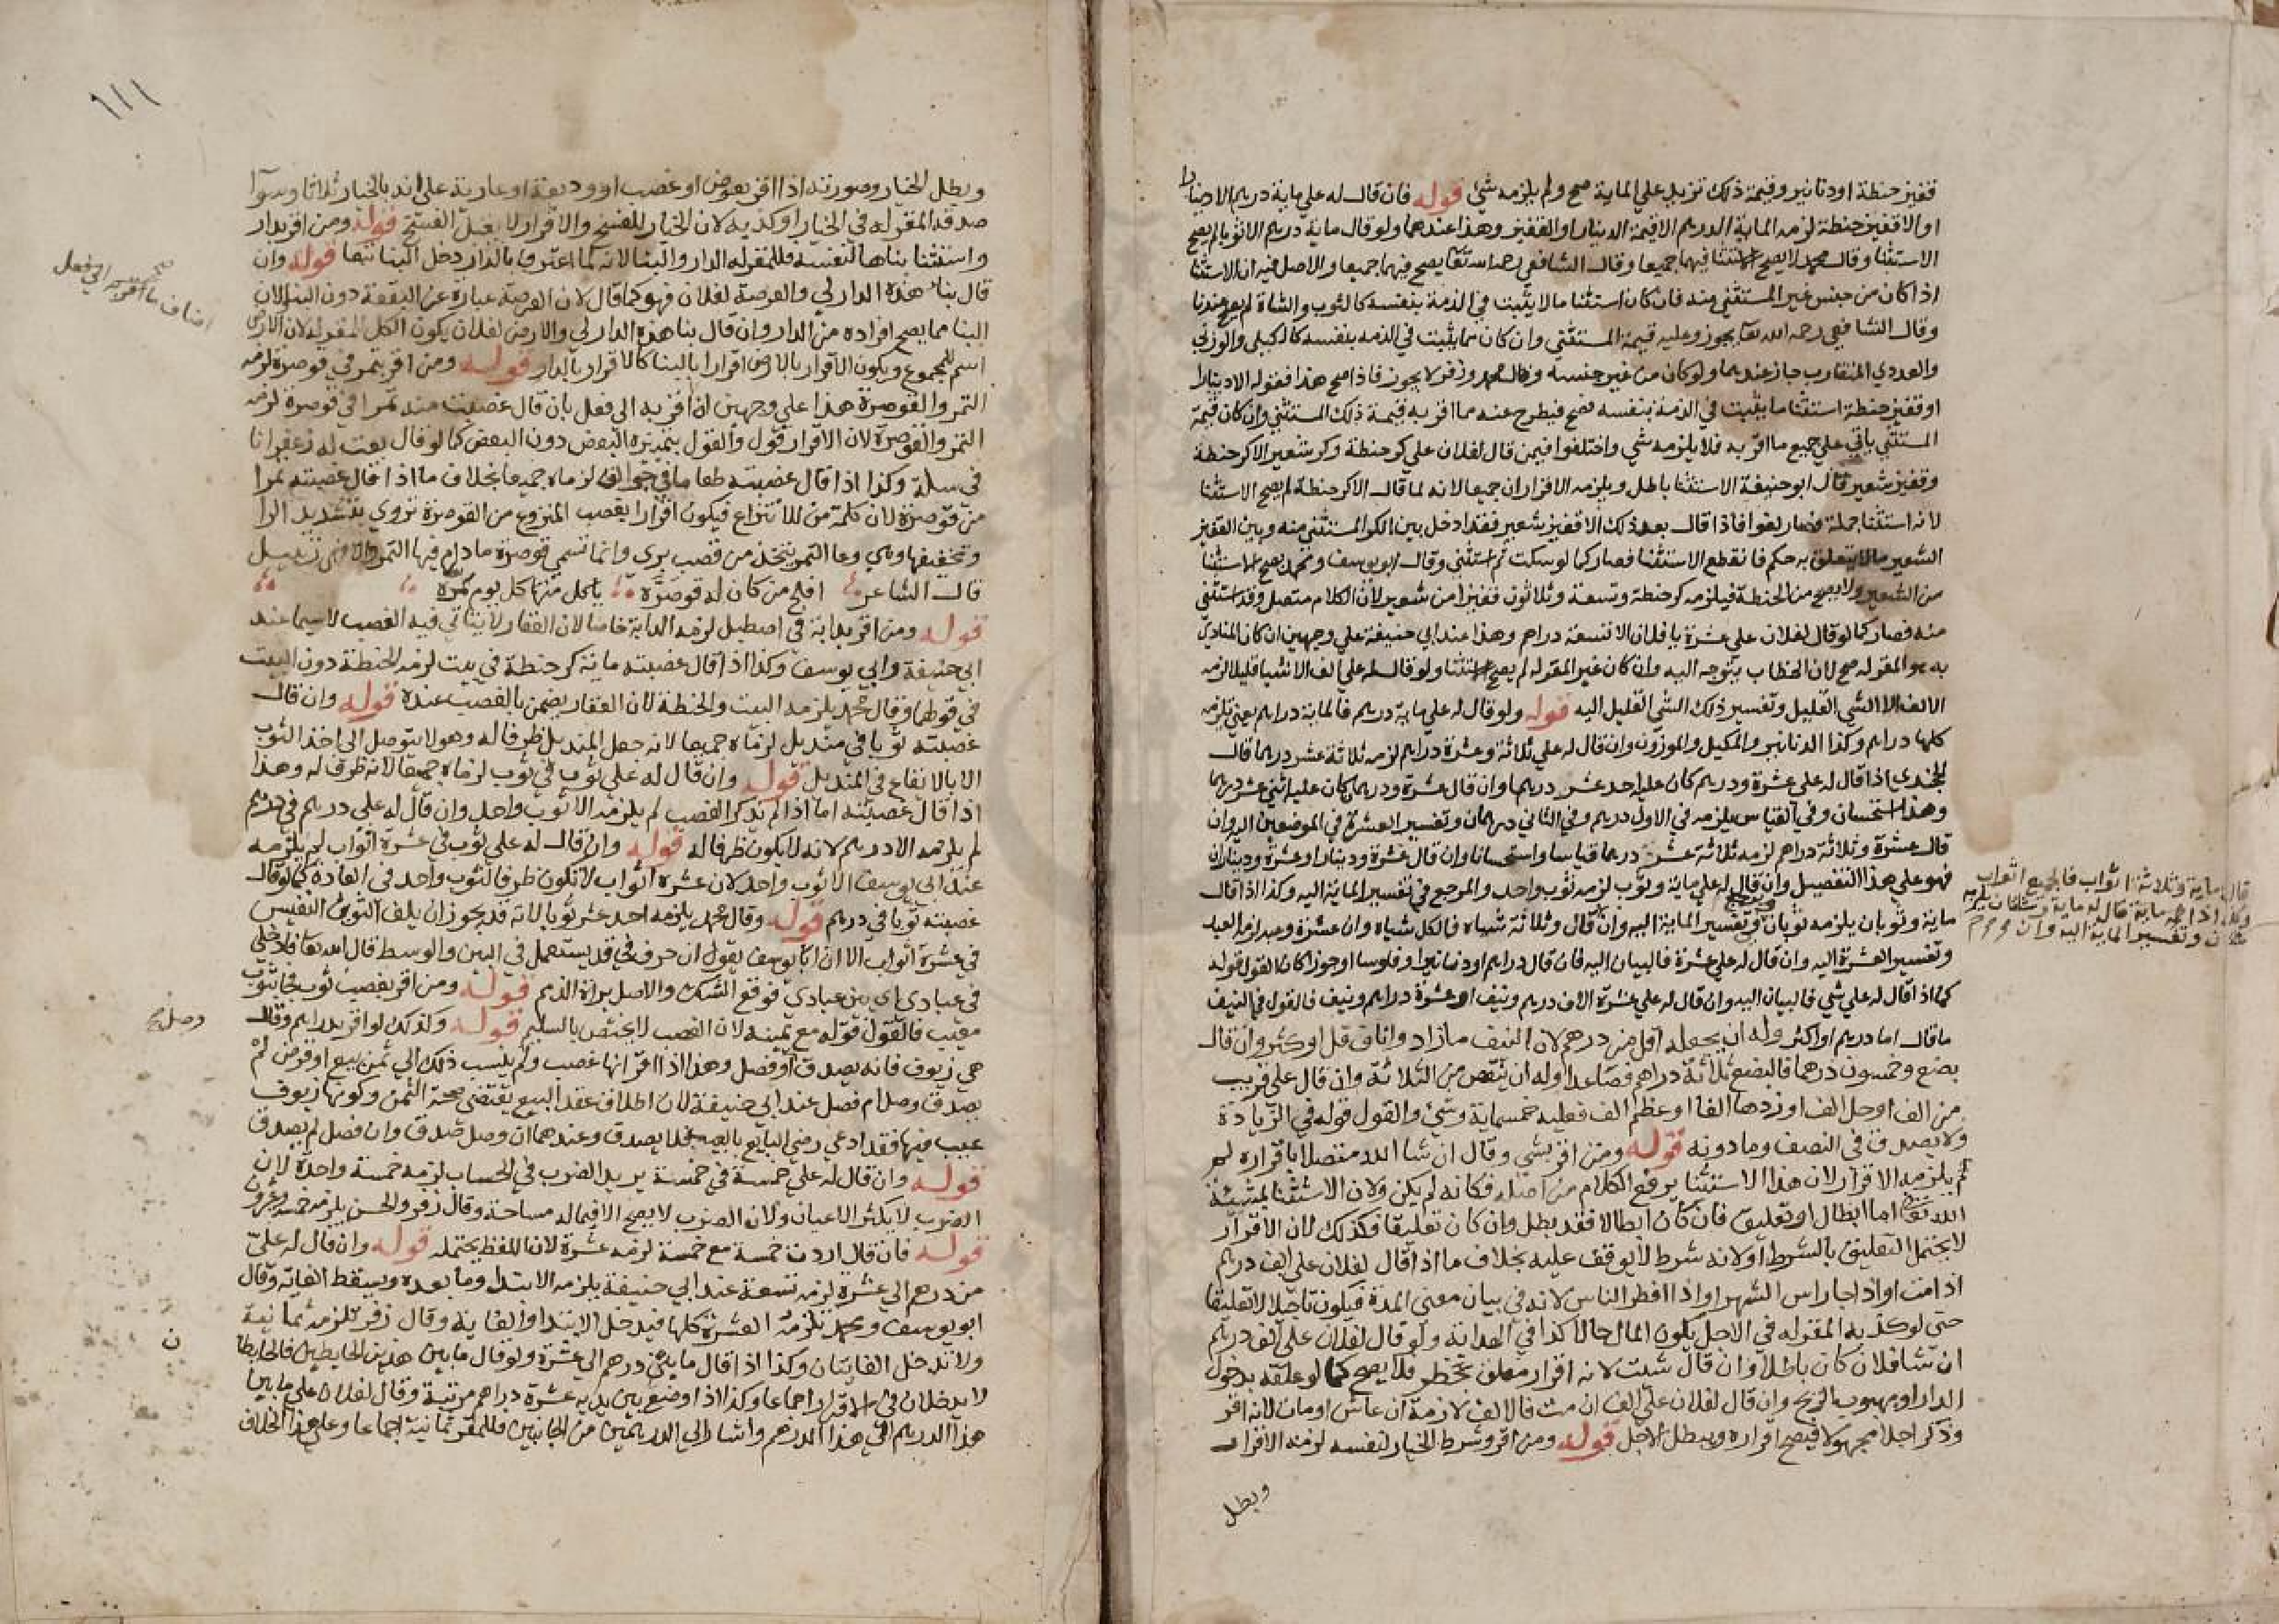 قفيز حنطة او دنانير وقيمة ذلك تزيد علي الماية صح ولم يلزمه شي قوله فان قال له علي ماية درهم الا دينارا
او الا قفيز حنطة لزمه الماية الدرهم الا قيمة الدينار او القفيز وهذا عندهما ولو قال ماية درهم الا ثوبا لم يصح
الاستثنا وقال محمد لا يصح الاستثنا فيهما جميعا وقال الشافعي رحمه الله تعا يصح فيهما جميعا والاصل فيه ان الاستثنا
اذا كان من جنس غير المستثني منه فان كان استثنا ما لا يثبت في الذمة بنفسه كالثوب والشاة لم يصح عندنا
وقال الشافعي رحمه الله تعا يجوز وعليه قيمة المستثني وان كان مما يثبت في الذمه بنفسه كالكيلي والوزني
والعددي المتقارب جاز عندهما ولو كان من غير جنسه وقال محمد وزفر لا يجوز فاذا صح هذا فقوله الا دينارا
او قفيز حنطة استثنا ما يثبت في الذمة بنفسه فصح فيطرح عنه مما اقر به قيمة ذلك المستثني وان كان قيمة
المستثني ياتي علي جميع ما اقر به فلا يلزمه شي واختلفوا فيمن قال لفلان علي كر حنطة وكر شعير الا كر حنطة
وقفيز شعير قال ابو حنيفة الاستثنا باطل ويلزمه الاقرار ان جميعا لانه لما قال الا كر حنطة لم يصح الاستثنا
لانه استثنا جملة فصار لغوا فاذا قال بعد ذلك الا قفيز شعير فقد ادخل بين الكر المستثني منه وبين القفيز
الشعير ما لا يتعلق به حكم فانقطع الاستثنا فصار كما لو سكت ثم استثني وقال ابو يوسف ومحمد يصح الاستثنا
من الشعير ولا يصح من الحنطة فيلزمه كر حنطة وتسعة وثلاثون قفيزا من شعير لان الكلام متصل وقد استثني
منه فصار كما لو قال لفلان علي عشرة يا فلان الا تسعة دراهم وهذا عند ابي حنيفة علي وجهين ان كان المنادي
به هو المقر له صح لان الخطاب يتوجه اليه وان كان غير المقر له لم يصح الاستثنا ولو قال له علي الف الا شيا قليلا لزمه
الالف الا الشي القليل وتفسير ذلك الشي القليل اليه قوله ولو قال له علي ماية درهم فالماية دراهم يعني تلزمه
كلها دراهم وكذا الدنانير والمكيل والموزون وان قال له علي ثلاثة وعشرة دراهم لزمه ثلاثة عشر درهما قال
الخجندي اذا قال له علي عشرة ودرهم كان عليه احد عشر درهما وان قال عشرة ودرهمان كان عليه اثني عشر درهما
وهذا استحسان وفي القياس يلزمه في الاول درهم وفي الثاني درهمان وتفسير العشرة في الموضعين اليه وان
قال عشرة وثلاثة دراهم لزمه ثلاثة عشر درهما قياسا واستحسانا وان قال عشرة ودينارا وعشرة وديناران
فهو علي هذا التفصيل وان قال له علي ماية وثوب لزمه ثوب واحد والمرجع في تفسير الماية اليه وكذا اذا قال
ماية وثوبان يلزمه ثوبان وتفسير الماية اليه وان قال وثلاثة شياه فالكل شياه وان عشرة وعبد لزم العبد
وتفسير العشرة اليه وان قال له علي عشرة فالبيان اليه فان قال دراهم او دنانير او فلوسا او جوزا كان القول قوله
كما اذا قال له علي شي فالبيان اليه وان قال له علي عشرة الاف درهم ونيف او عشرة دراهم ونيف فالقول في النيف
ما قال اما درهم او اكثر وله ان يجعله اقل من درهم لان النيف ما زاد واناف قل او كثر وان قال
بضع وخمسون درهما فالبضع ثلاثة دراهم فصاعدا وله ان ينقص من الثلاثة وان قال علي قريب
من الف او جل الف او زهاء الفا او عظم الف فعليه خمسماية وشي والقول قوله في الزيادة
ولا يصدق في النصف وما دونه قوله ومن اقر بشي وقال ان شا الله متصلا باقراره لم
يلزمه الاقرار لان هذا الاستثنا يرفع الكلام من اصله فكانه لم يكن ولان الاستثنا بمشيئة
الله تعا اما ابطال او تعليق فان كان ابطالا فقد بطل وان كان تعليقا فكذلك لان الاقرار
لا يحتمل التعليق بالشرط او لانه شرط لا يوقف عليه بخلاف ما اذا قال لفلان علي الف درهم
اذا مت او اذا جا راس الشهر او اذا افطر الناس لانه في بيان معني المدة فيكون تاجيلا لا تعليقا
حتي لو كذبه المقر له في الاجل يكون المال حالا كذا في الهداية ولو قال لفلان علي الف درهم
ان شا فلان كان باطلا وان قال شئت لانه اقرار معلق بخطر فلا يصح كما لو علقه بدخول
الدار او بهبوب الريح وان قال لفلان علي الف ان مت فالالف لازمة ان عاش او مات لانه اقر
وذكر اجلا مجهولا فيصح اقراره ويبطل الاجل قوله ومن اقر وشرط الخيار لنفسه لزمه الاقرار
وبطل
قال ماية وثلاثة اثواب فالجميع اثواب
١١١
وبطل الخيار وصورته اذا اقر بقرض او غصب او وديعة او عارية علي انه بالخيار ثلاثا وسوا
صدقه المقر له في الخيار او كذبه لان الخيار للفسخ والاقرار لا يقبل الفسخ قوله ومن اقر بدار
واستثنا بناها لنفسه فللمقر له الدار والبنا لانه لما اعترف بالدار دخل البنا تبعا قوله وان
قال بنا هذه الدار لي والعرصة لفلان فهو كما قال لان العرصة عبارة عن البقعة دون البنا لان
البنا مما يصح افراده من الدار وان قال بنا هذه الدار لي والارض لفلان يكون الكل للمقر له لان الارض
اسم للمجموع ويكون الاقرار بالارض اقرارا بالبنا كالاقرار بالدار قوله ومن اقر بتمر في قوصرة لزمه
التمر والقوصرة هذا علي وجهين ان اقر به الي فعل بان قال غصبت منه تمرا في قوصرة لزمه
التمر والقوصرة لان الاقرار قول والقول يتميز به البعض دون البعض كما لو قال بعت له زعفرانا
في سلة وكذا اذا قال غصبته طعاما في جوالق لزماه جميعا بخلاف ما اذا قال غصبته تمرا
من قوصرة لان كلمة من للانتزاع فيكون اقرارا بغصب المنزوع من القوصرة تروي بتشديد الرا
وتخفيفها وهي وعا التمر يتخذ من قصب بري وانما تسمي قوصرة ما دام فيها التمر والا فهي زنبيل
قال الشاعر افلح من كان له قوصرة ياكل منها كل يوم مرة
قوله ومن اقر بدابة في اصطبل لزمه الدابة خاصا لان العقار لا يتاتي فيه الغصب لا سيما عند
ابي حنيفة وابي يوسف وكذا اذا قال غصبته ماية كر حنطة في بيت لزمه الحنطة دون البيت
في قولهما وقال محمد يلزمه البيت والحنطة لان العقار يضمن بالغصب عنده قوله وان قال
غصبته ثوبا في منديل لزماه جميعا لانه جعل المنديل ظرفا له وهو لا يتوصل الي اخذ الثوب
الا بالايقاع في المنديل قوله وان قال له علي ثوب في ثوب لزماه جميعا لانه ظرف له وهذا
اذا قال غصبته اما اذا لم يذكر الغصب لم يلزمه الا ثوب واحد وان قال له علي درهم في درهم
لم يلزمه الا درهم لانه لا يكون ظرفا له قوله وان قال له علي ثوب في عشرة اثواب لم يلزمه
عند ابي يوسف الا ثوب واحد لان عشرة اثواب لا تكون ظرفا لثوب واحد في العادة كما لو قال
غصبته ثوبا في درهم قوله وقال محمد يلزمه احد عشر ثوبا لانه قد يجوز ان يلف الثوب النفيس
في عشرة اثواب الا ان ابا يوسف يقول ان حرف في قد يستعمل في البين والوسط قال الله تعا فادخلي
في عبادي اي بين عبادي فوقع الشك والاصل براة الذمم قوله ومن اقر بغصب ثوب فجا بثوب
معيب فالقول قوله مع يمينه لان الغصب لا يختص بالسليم قوله وكذلك لو اقر بدراهم وقال
هي زيوف فانه يصدق او فصل وهذا اذا اقر انها غصب ولم ينسب ذلك الي ثمن بيع او قرض لم
يصدق وصل ام فصل عند ابي حنيفة لان اطلاق عقد البيع يقتضي صحة الثمن وكونها زيوف
عيب فيها فقد ادعي رضي البايع بالعيب فلا يصدق وعندهما ان وصل صدق وان فصل لم يصدق
قوله وان قال له علي خمسة في خمسة يريد الضرب في الحساب لزمه خمسة واحدة لان
الضرب لا يكثر الاعيان ولان الضرب لا يصح الا فيما له مساحة وقال زفر والحسن يلزمه خمسة وعشرون
قوله فان قال اردت خمسة مع خمسة لزمه عشرة لان اللفظ يحتمله قوله وان قال له علي
من درهم الي عشرة لزمه تسعة عند ابي حنيفة يلزمه الابتدا وما بعده ويسقط الغاية وقال
ابو يوسف ومحمد تلزمه العشرة كلها فيدخل الابتدا والغاية وقال زفر تلزمه ثمانية
ولا تدخل الغايتان وكذا اذا قال ما بين درهم الي عشرة ولو قال ما بين هذين الحايطين فالحايطا
لا يدخلان في الاقرار اجماعا وكذا اذا وضع بين يديه عشرة دراهم مرتبة وقال لفلان علي ما بين
هذا الدرهم الي هذا الدرهم واشار الي الدرهمين من الجانبين فللمقر ثمانية اجماعا وعلي هذا الخلاف